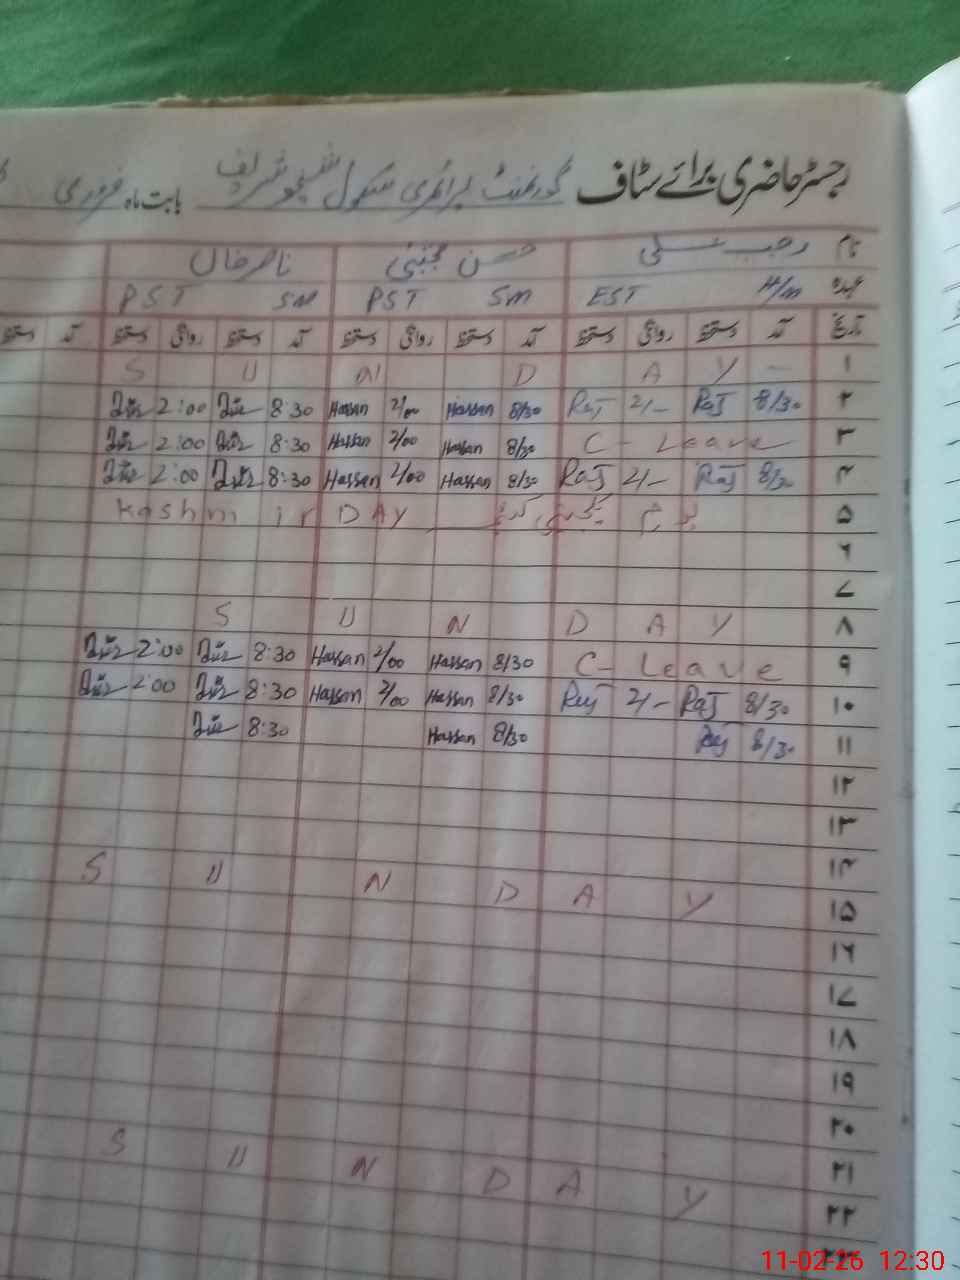 رجسٹر حاضری برائے سٹاف گورنمنٹ پرائمری سکول شریف بابت ماہ فروری
نام رجب علی حسن مجتبیٰ ناصر خان
عہدہ H/m EST SM PST SM PST
تاریخ آمد دستخط روانگی دستخط آمد دستخط روانگی دستخط آمد دستخط روانگی دستخط آمد دستخط
۱ S U N D A Y
۲ 8/30 Raj 2/- Raj 8/30 Hassan 2/00 Hassan 8:30 2:00
۳ C - Leave 8/30 Hassan 2/00 Hassan 8:30 2:00
۴ 8/30 Raj 2/- Raj 8/30 Hassan 2/00 Hassan 8:30 2:00
۵ Kashmir DAY یوم یکجہتی کشمیر
۶
۷
۸ S U N D A Y
۹ C - Leave 8/30 Hassan 2/00 Hassan 8:30 2:00
۱۰ 8/30 Raj 2/- Raj 8/30 Hassan 2/00 Hassan 8:30 2:00
۱۱ 8/30 Raj 8/30 Hassan 8:30
۱۲
۱۳
۱۴
۱۵ S U N D A Y
۱۶
۱۷
۱۸
۱۹
۲۰
۲۱
۲۲ S U N D A Y
۲۳
11-02-26 12:30